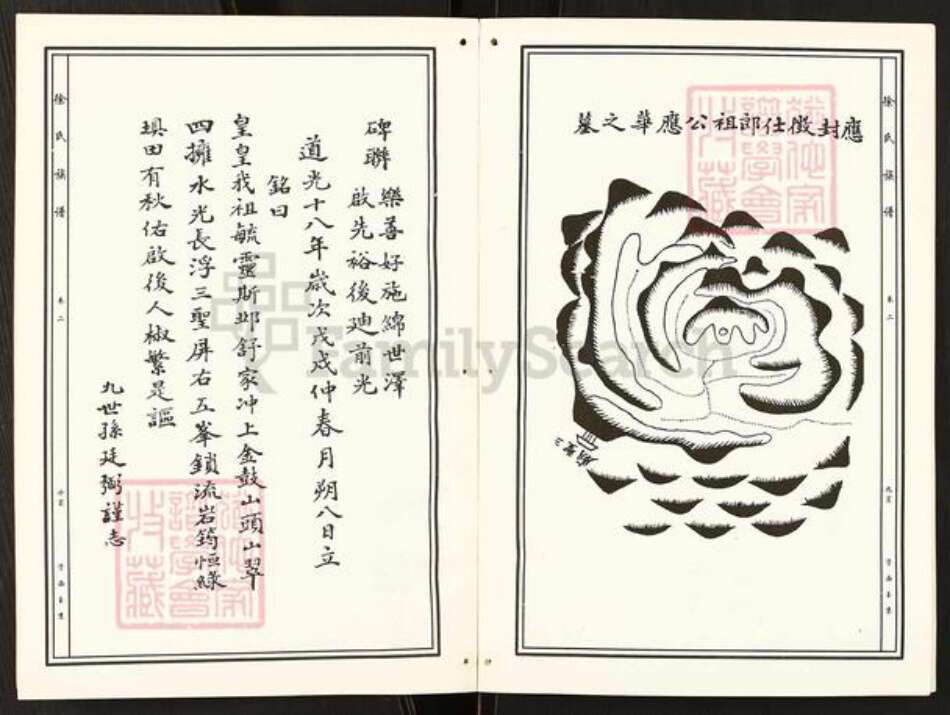 應封徵仕郎祖公應華之墓
三聖廟
徐氏族譜
卷二
碑聯
樂善好施綿世澤
啟先裕後廸前光
道光十八年歲次戊戌仲春月朔八日立
銘曰
皇皇我祖毓靈斯邱舒家冲上金鼓山頭山翠
四擁水光長浮三聖屏右五峯鎖流岩筠恒綠
塤田有秋佑啟後人椒繁是謳
九世孫廷弼謹志
徐氏族譜
卷二
FamilySearch